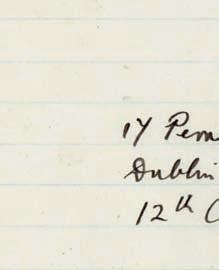 17 Pem
Dublin
12th